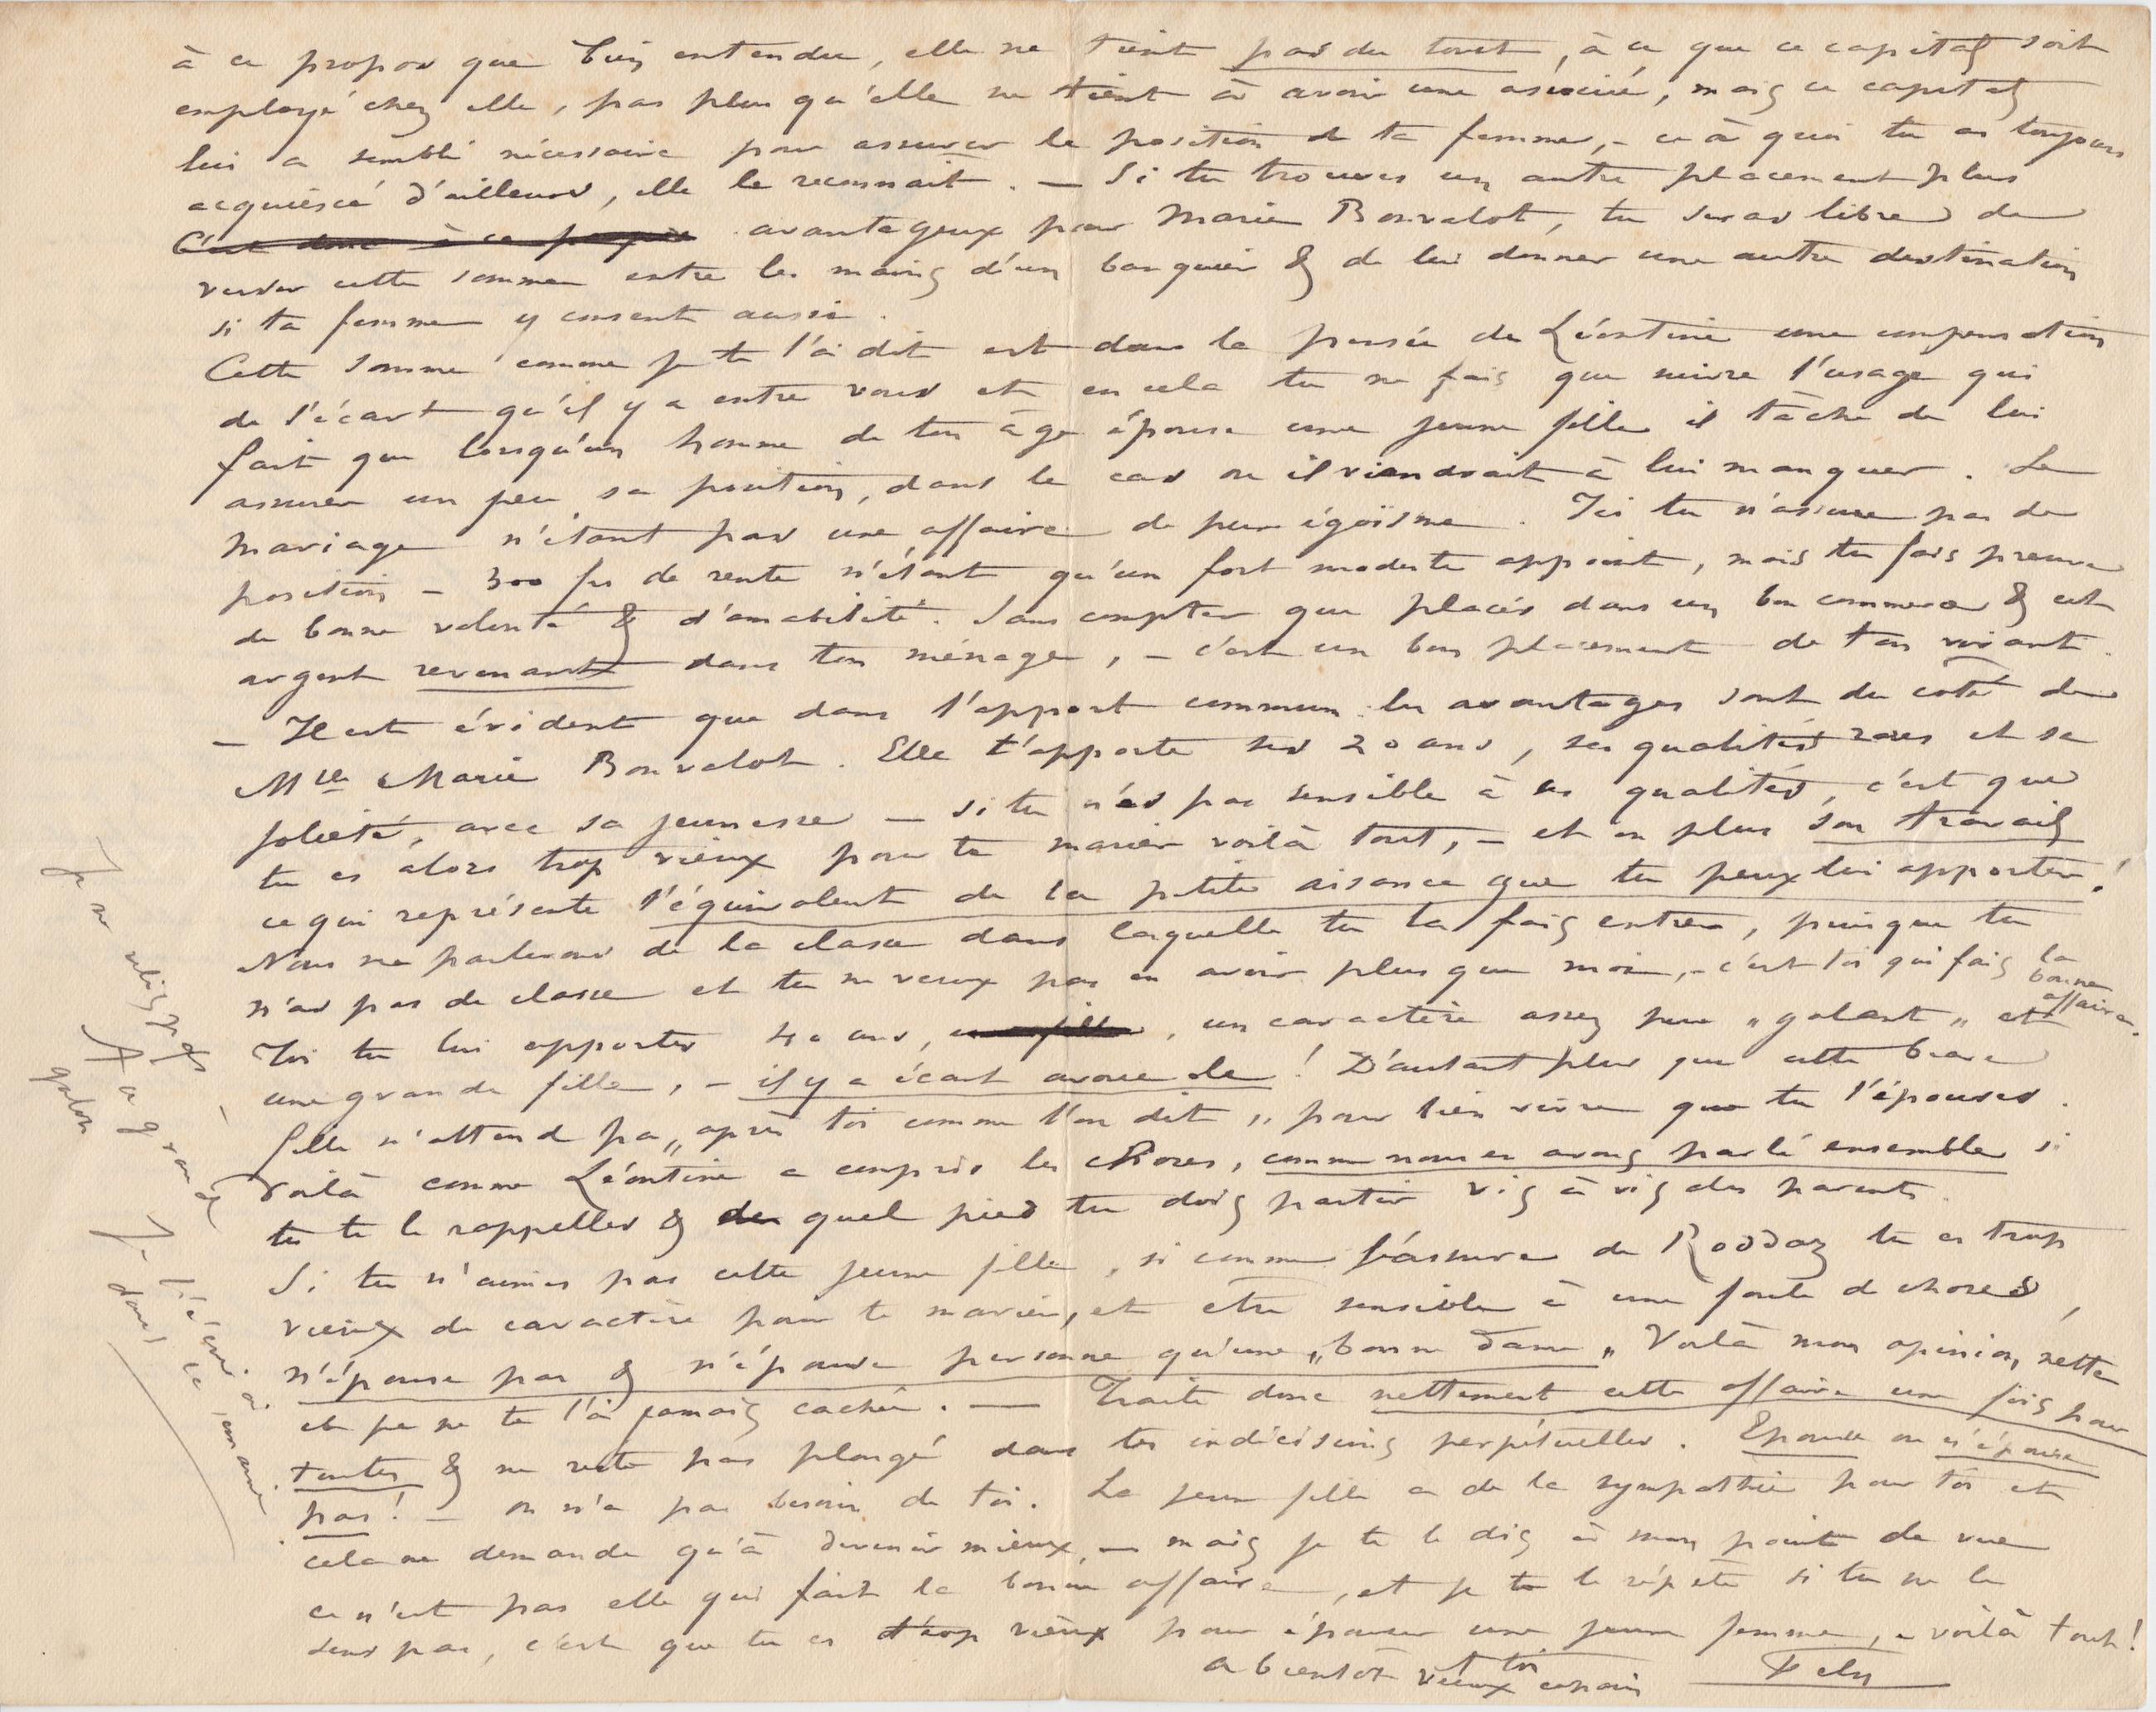 à ce propos que bien entendu, elle ne tient pas du tout, à ce que ce capital soit
employé chez elle, pas plus qu'elle ne tient à avoir une associée, mais ce capital
lui a semblé nécessaire pour assurer la position de ta femme, - ce à quoi tu as toujours
acquiescé d'ailleurs, elle le reconnait. — Si tu trouves un autre placement plus
C'est donc à ce propos avantageux pour Marie Bonvalot, tu seras libre de
verser cette somme entre les mains d'un banquier & de lui donner une autre destination
si ta femme y consent aussi.
Cette somme comme je te l'ai dit est dans la pensée de Léontine une compensation
de l'écart qu'il y a entre vous et en cela tu ne fais que suivre l'usage qui
fait que lorsqu'un homme de ton âge épouse une jeune fille il tâche de lui
assurer un peu sa position, dans le cas ou il viendrait à lui manquer. Le
mariage n'étant pas une affaire de pur égoïsme. Ici tu n'assures pas de
position - 300 frs de rente n'étant qu'un fort modeste appoint, mais tu fais preuve
de bonne volonté & d'amabilité. Sans compter que placés dans un bon commerce & cet
argent revenant dans ton ménage, - c'est un bon placement de ton vivant.
— Il est évident que dans l'apport commun les avantages sont du coté de
Mlle Marie Bonvalot. Elle t'apporte ses 20 ans, ses qualités rares et sa
jolieté, avec sa jeunesse — si tu n'es pas sensible à ces qualités, c'est que
tu es alors trop vieux pour te marier voilà tout, - et en plus son travail
ce qui représente l'équivalent de la petite aisance que tu peux lui apporter!
Nous ne parlerons de la classe dans laquelle tu la fais entrer, puisque tu
n'as pas de classe et tu ne veux pas en avoir plus que moi, - c'est toi qui fais la bonne affaire.
Toi tu lui apportes 40 ans, un caractère assez peu „galant" et
une grande fille, - il y a écart avoue le! D'autant plus que cette brave
fille n'attend pas „après toi comme l'on dit" pour bien vivre que tu l'épouses.
Voilà comme Léontine a compris les choses, comme nous en avons parlé ensemble si
tu te le rappelles & de quel pied tu dois partir vis à vis des parents.
Si tu n'aimes pas cette jeune fille, si comme l'assure de Roddaz tu es trop
vieux de caractère pour te marier, et etre sensible à une foule de choses,
n'épouse pas & n'épouse personne qu'une „bonne dame" Voilà mon opinion, nette
et je ne te l'ai jamais cachée. — Traite donc nettement cette affaire une fois pour
toutes & ne reste pas plongé dans tes indécisions perpétuelles. Epouse ou n'épouse
pas! - on n'a pas besoin de toi. La jeune fille a de la sympathie pour toi et
cela ne demande qu'à devenir mieux, - mais je te le dis à mon point de vue
ce n'est pas elle qui fait la bonne affaire, et je te le répète si tu ne le
sens pas, c'est que tu es trop vieux pour épouser une jeune femme, - voilà tout!
a bientôt et toi
vieux copain Fély
Je ne
A a grande
galon
Je l'écrirai
dans la semaine